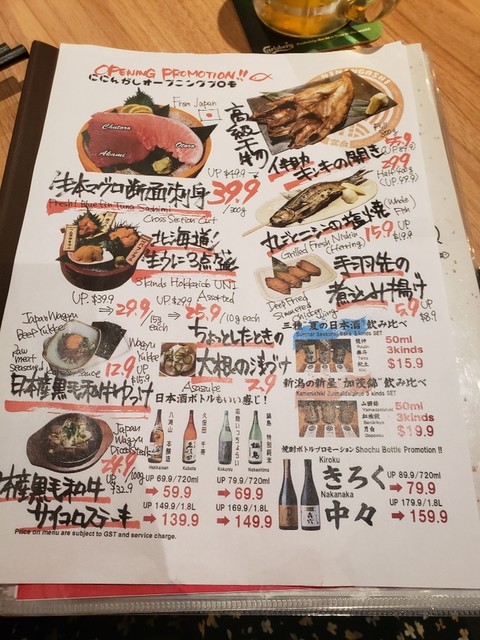 Carlsberg
OPENING PROMOTION!!
ににんがしオープニングプロモ
From Japan
Chutoro
Otoro
Akami
UP $49.9 →
39.9
/300g
本マグロ断面刺身
Fresh! Blue Fin Tuna Sashimi
Cross Section Cut
高級干物
キンキの開き
59.9
丸ごとニシンの塩焼
Grilled Fresh Nishin
(Herring)
(Whole)
Fish
15.9
UP $19.9
北海道!
生ウニ3点盛
3 kinds Hokkaido UNI
Assorted
UP $39.9
→ 29.9
/15g each
UP $29.9
→ 25.9
/10g each
手羽先の
煮こみ揚げ
Deep Fried
5.9
UP $8.9
Japan Wagyu
Beef Yukke
raw
meat
Wagyu
Yukke
12.9
UP $15.9
日本産黒毛和牛ゆっけ
ちょっとしたときの
大根の浅づけ
Asazuke
2.9
三種"夏の日本酒"飲み比べ
Summer Seasonal Sake 3 kinds SET
50ml
3kinds
$15.9
新潟の新星"加茂錦"飲み比べ
Kamonishiki Junmaidaiginjo 3 kinds SET
50ml
3kinds
$19.9
日本酒ボトルもいい感じ!
八海山 本醸造
Hakkaisan
久保田 千寿
Kubota
Kokuryu
鍋島 特別純米
Nabeshima
UP 69.9 /720ml
→ 59.9
UP 79.9 /720ml
→ 69.9
149.9 /1.8L
→ 139.9
UP 169.9 /1.8L
→ 149.9
Japan
Wagyu
Diced Steak
24.9
/100g
UP $32.9
産黒毛和牛
サイコロステーキ
焼酎ボトルプロモーション Shochu Bottle Promotion !!
Kiroku
きろく
Nakanaka
中々
UP 89.9 /720ml
→ 79.9
UP 179.9 /1.8L
→ 159.9
Price on menu are subject to GST and service charge.